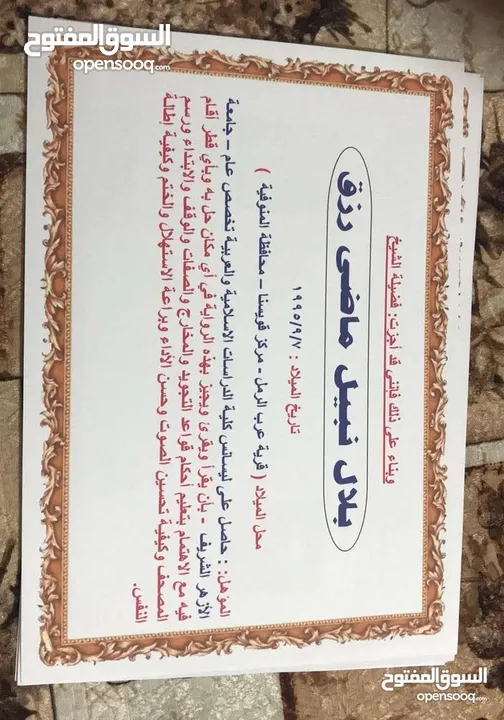 السوق المفتوح
opensooq.com
وبناء على ذلك فإنني قد أجزت: فضيلة الشيخ
بلال نبيل ماضى رزق
تاريخ الميلاد : ١٩٩٥/٩/٧
محل الميلاد ( قرية عرب الرمل – مركز قويسنا – محافظة المنوفية )
المؤهل: : حاصل على ليسانس كلية الدراسات الاسلامية والعربية تخصص عام – جامعة
الأزهر الشريف - بأن يقرأ ويقرئ ويجيز بهذه الرواية في أي مكان حل به وبأي قطر أقام
فيه مع الاهتمام بتعليم أحكام قواعد التجويد والمخارج والصفات والوقف والابتداء ورسم
المصحف وكيفية تحسين الصوت وحسن الأداء وبراعة الاستهلال والختم وكيفية إطالة
النفس.
السوق المفتوح
opensooq.com